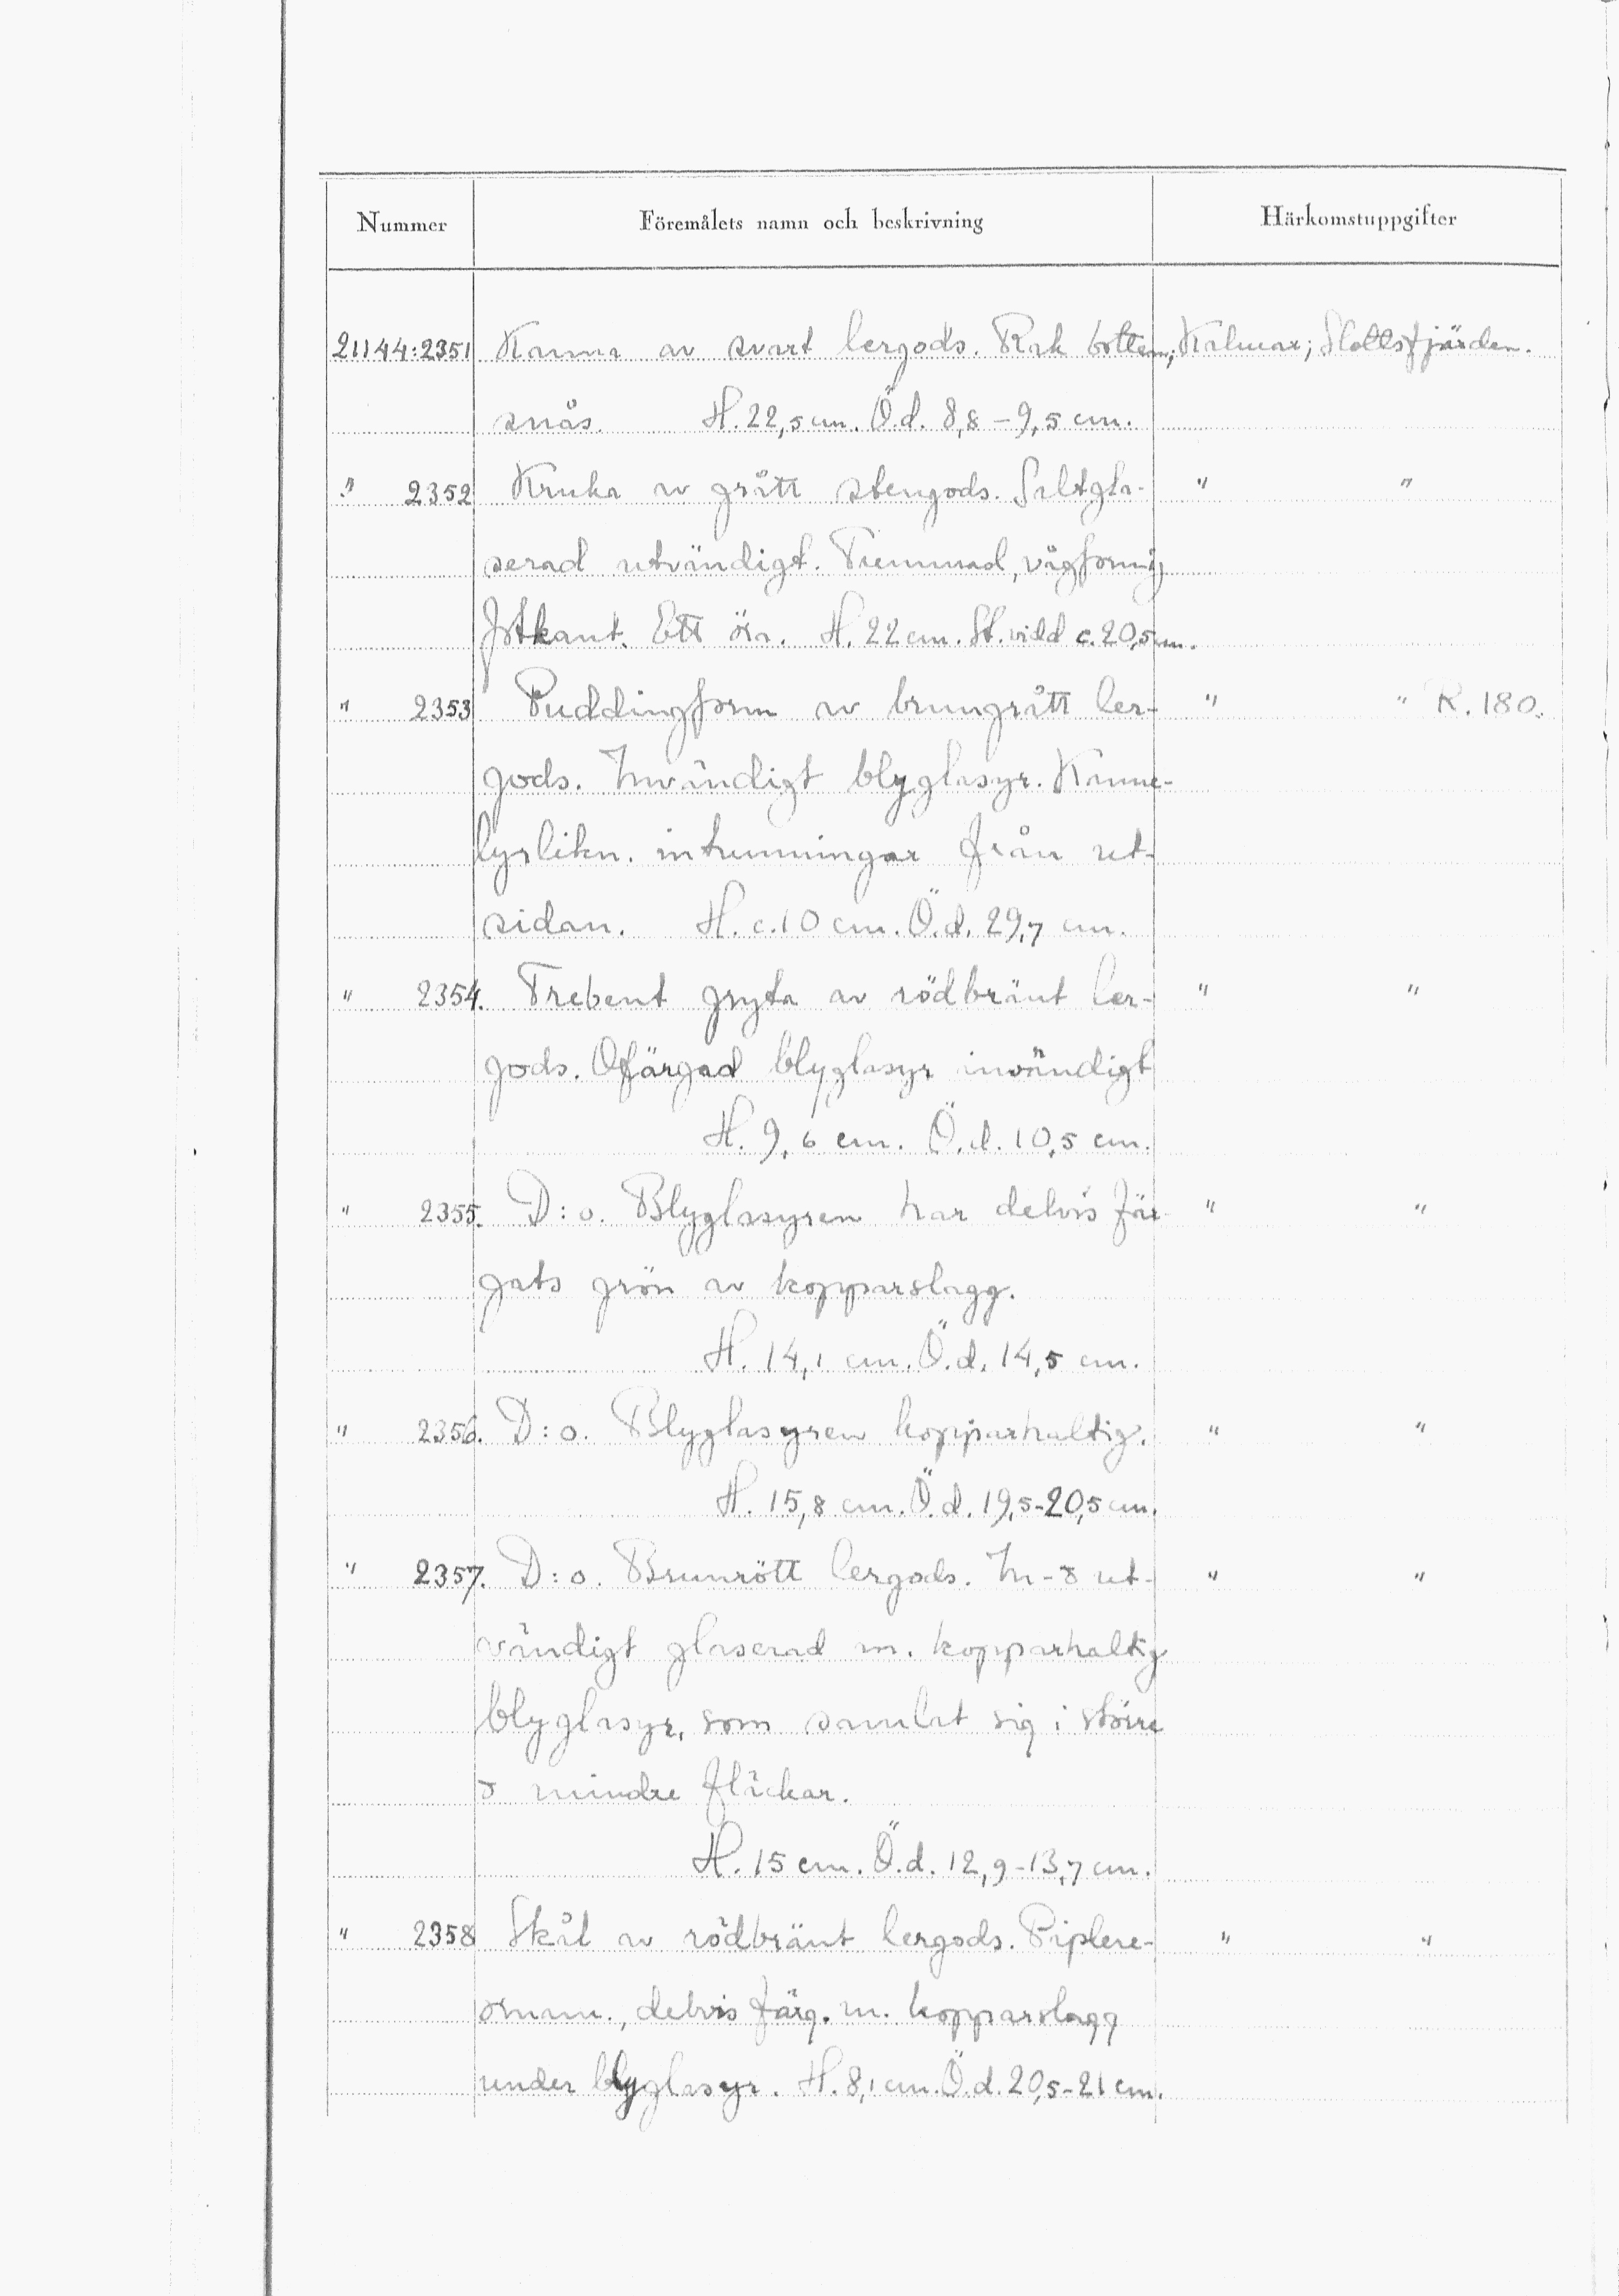 Nummer Föremålets namn och beskrivning Härkomstuppgifter
21144:2351 Kanna av svart lergods. Rak botten; Kalmar; Slottsfjärden.
snås. H. 22,5 cm. Ö.d. 8,8-9,5 cm.
" 2352 Kruka av grått stengods. Saltgla- " "
serad utvändigt. Tummad, vågformig
fotkant. Ett öra. H. 22 cm. St. vidd c. 20,5 cm.
" 2353 Puddingform av brungrått ler- " " R. 180.
gods. Invändigt blyglasyr. Kanne-
lyrlikn. intumningar från ut-
sidan. H. c. 10 cm. Ö.d. 29,7 cm.
" 2354. Trebent gryta av rödbränt ler- " "
gods. Ofärgad blyglasyr invändigt
H. 9,6 cm. Ö.d. 10,5 cm.
" 2355. D:o. Blyglasyren har delvis fär- " "
gats grön av kopparslagg.
H. 14,1 cm. Ö.d. 14,5 cm.
" 2356. D:o. Blyglasyren kopparhaltig. " "
H. 15,8 cm. Ö.d. 19,5-20,5 cm.
" 2357. D:o. Brunrött lergods. In- o ut- " "
vändigt glaserad m. kopparhaltig
blyglasyr, som samlat sig i större
o mindre fläckar.
H. 15 cm. Ö.d. 12,9-13,7 cm.
" 2358 Skål av rödbränt lergods. Piplere- " "
ornam., delvis färg. m. kopparslagg
under blyglasyr. H. 8,1 cm. Ö.d. 20,5-21 cm.